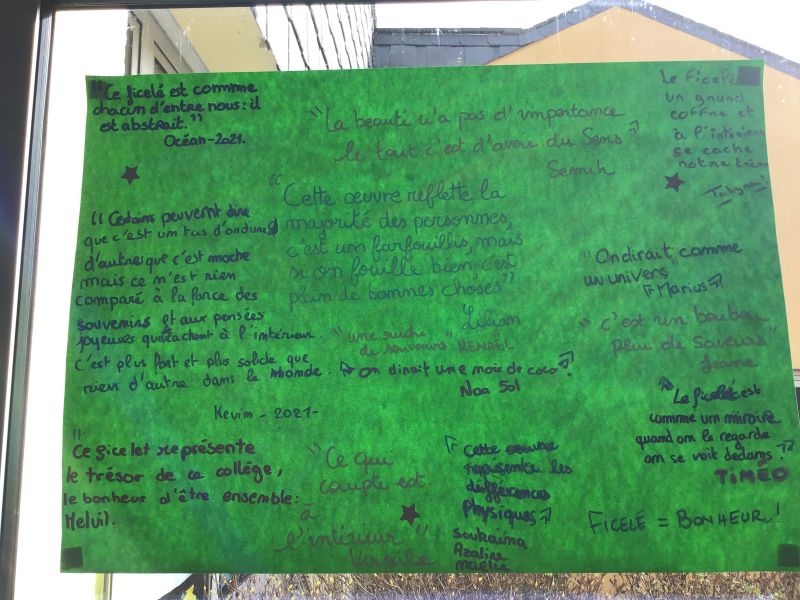 "Ce ficelé est commme
chacun d'entre nous: il
est abstrait."
Océan-2021.
"La beauté n'a pas d'importance
le tout c'est d'avoir du Sens"
Semih
Le ficelé
un grand
coffre et
à l'intérieur
se cache
notre
"Cette œuvre reflette la
majorité des personnes,
c'est un farfouillis, mais
si on fouille bien c'est
plein de bonnes choses"
Lilian
"Certains peuvent dire
que c'est um tas d'ordures
d'autres que c'est moche
mais ce n'est rien
comparé à la force des
souvenirs et aux pensées
joyeuses qui attachent à l'intérieur.
c'est plus fort et plus solide que
rien d'autre dans le monde.
Kevim - 2021-
"On dirait comme
un univers
"Marius"
"une ruche
de souvenirs" RENAËL
"c'est un boubou
plein de Saveurs"
Jeanne
"on dirait une noix de coco".
Noa Sol
"Le ficelé est
comme um miroire
quand om le regarde
om se voit dedams."
TIMÉO
"Ce ficelet représente
le trésor de ce collége,
le bonheur d'être ensemble:
Melvil.
"Ce qui
compte est
à
l'intérieur"
Virgile
"Cette œuvre
représente les
différences
Physiques"
Soukaina
Azaline
Maelie
FICELÉ = BONHEUR!